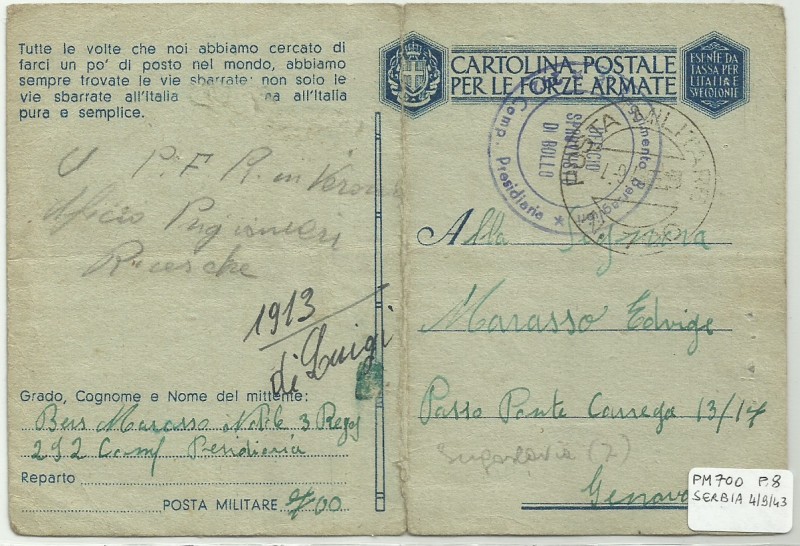 Tutte le volte che noi abbiamo cercato di
farci un po' di posto nel mondo, abbiamo
sempre trovate le vie sbarrate: non solo le
vie sbarrate all'Italia ma all'Italia
pura e semplice.
P. F. R. in Verona
Ufficio Prigionieri
Ricerche
1913
di Luigi
Grado, Cognome e Nome del mittente:
Bers Marasso 3 Regg
292 Comp Presidiaria
Reparto
POSTA MILITARE 700
CARTOLINA POSTALE
PER LE FORZE ARMATE
ESENTE DA
TASSA PER
L'ITALIA E
SVE COLONIE
Comp. Presidiaria
SPROVVISTO
DI BOLLO
POSTA MILITARE
Alla Signora
Marasso Edvige
Passo Ponte Carrega 13/14
Jugoslavia (?)
Genova
PM 700 P.8
SERBIA 4/9/43